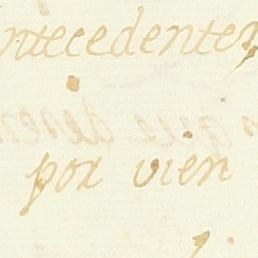 ntecedentes
por vien